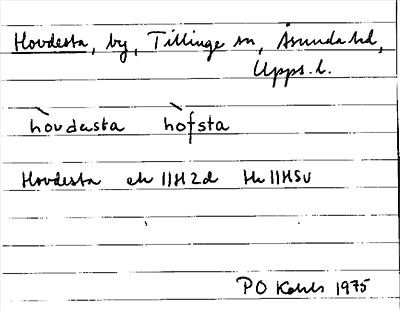 Hovdesta, by, Tillinge sn, Åsunda hd,
Upps. l.
hòvdesta hòfsta
Hovdesta ek 11H2d Hu 11HSV
PO 1975